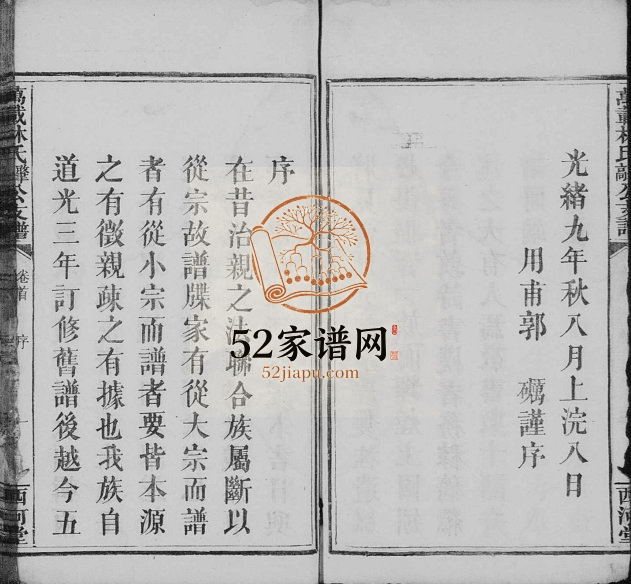 光緒九年秋八月上浣八日
用甫郭礪謹序
序
在昔治親之法聯合族屬斷以
從宗故譜牒家有從大宗而譜
者有從小宗而譜者要皆本源
之有徵親疎之有據也我族自
道光三年訂修舊譜後越今五
萬載林氏譁公支譜
卷首
序
西河堂
萬載林氏
公支譜
西河堂
52家谱网
52jiapu.com